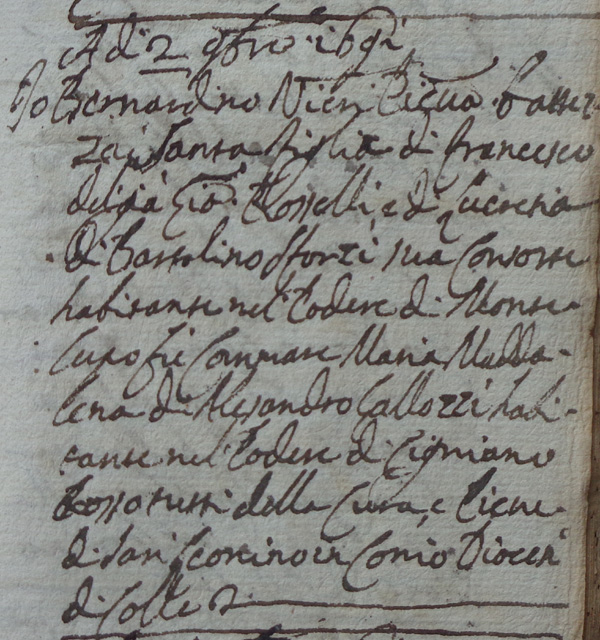 Adi 2 9bre 1691
Io Bernardino Nieri Pieva. battez=
zai Santa figlia di Francesco
del già Gio: Rosselli, e di Lucretia
di Bartolino Sforzi, sua Consorte
habitante nel Podere di Monte=
lupo fù Commare Maria Madda=
lena di Alesandro Callozzi habi=
tante nel Podere di Cigniano
Rosso tutti della Cura, e Pieve
di San in Conio Diocesi
di Colle